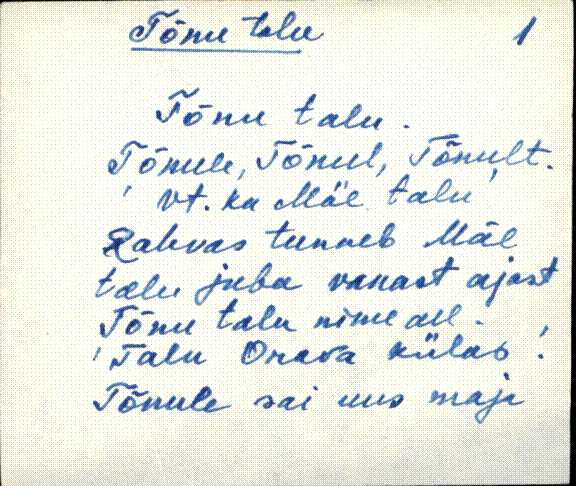 Tõnu talu 1
Tõnu talu.
Tõnule, Tõnul, Tõnult.
Vt. ka Mäe talu
Rahvas tunneb Mäe
talu juba vanast ajast
Tõnu talu nime all.
'Talu Orava külas'.
Tõnule sai uus maja